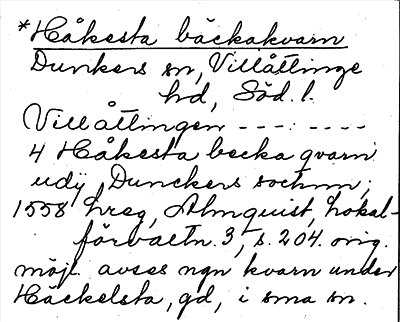 *Håkesta bäckakvarn
Dunkers sn, Villåttinge
hd, Söd. l.
Villåttingen ---:----
4 Håkesta becka qvarn
udij Dunckers sochnn;
1558 hreg, Almquist, Lokal-
förvaltn. 3, s. 204. orig.
möjl. avses ngn kvarn under
Häckelsta, gd, i sma sn.